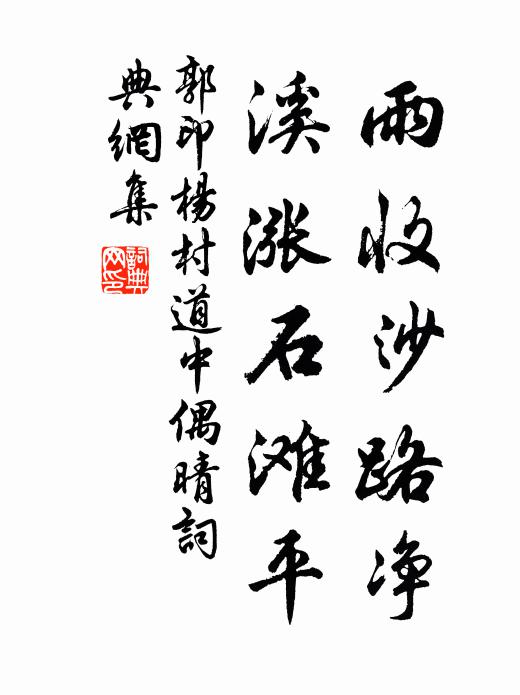 雨收沙路净
溪漲石滩平
郭印楊村道中偶晴詞
典網集
詞典
网印